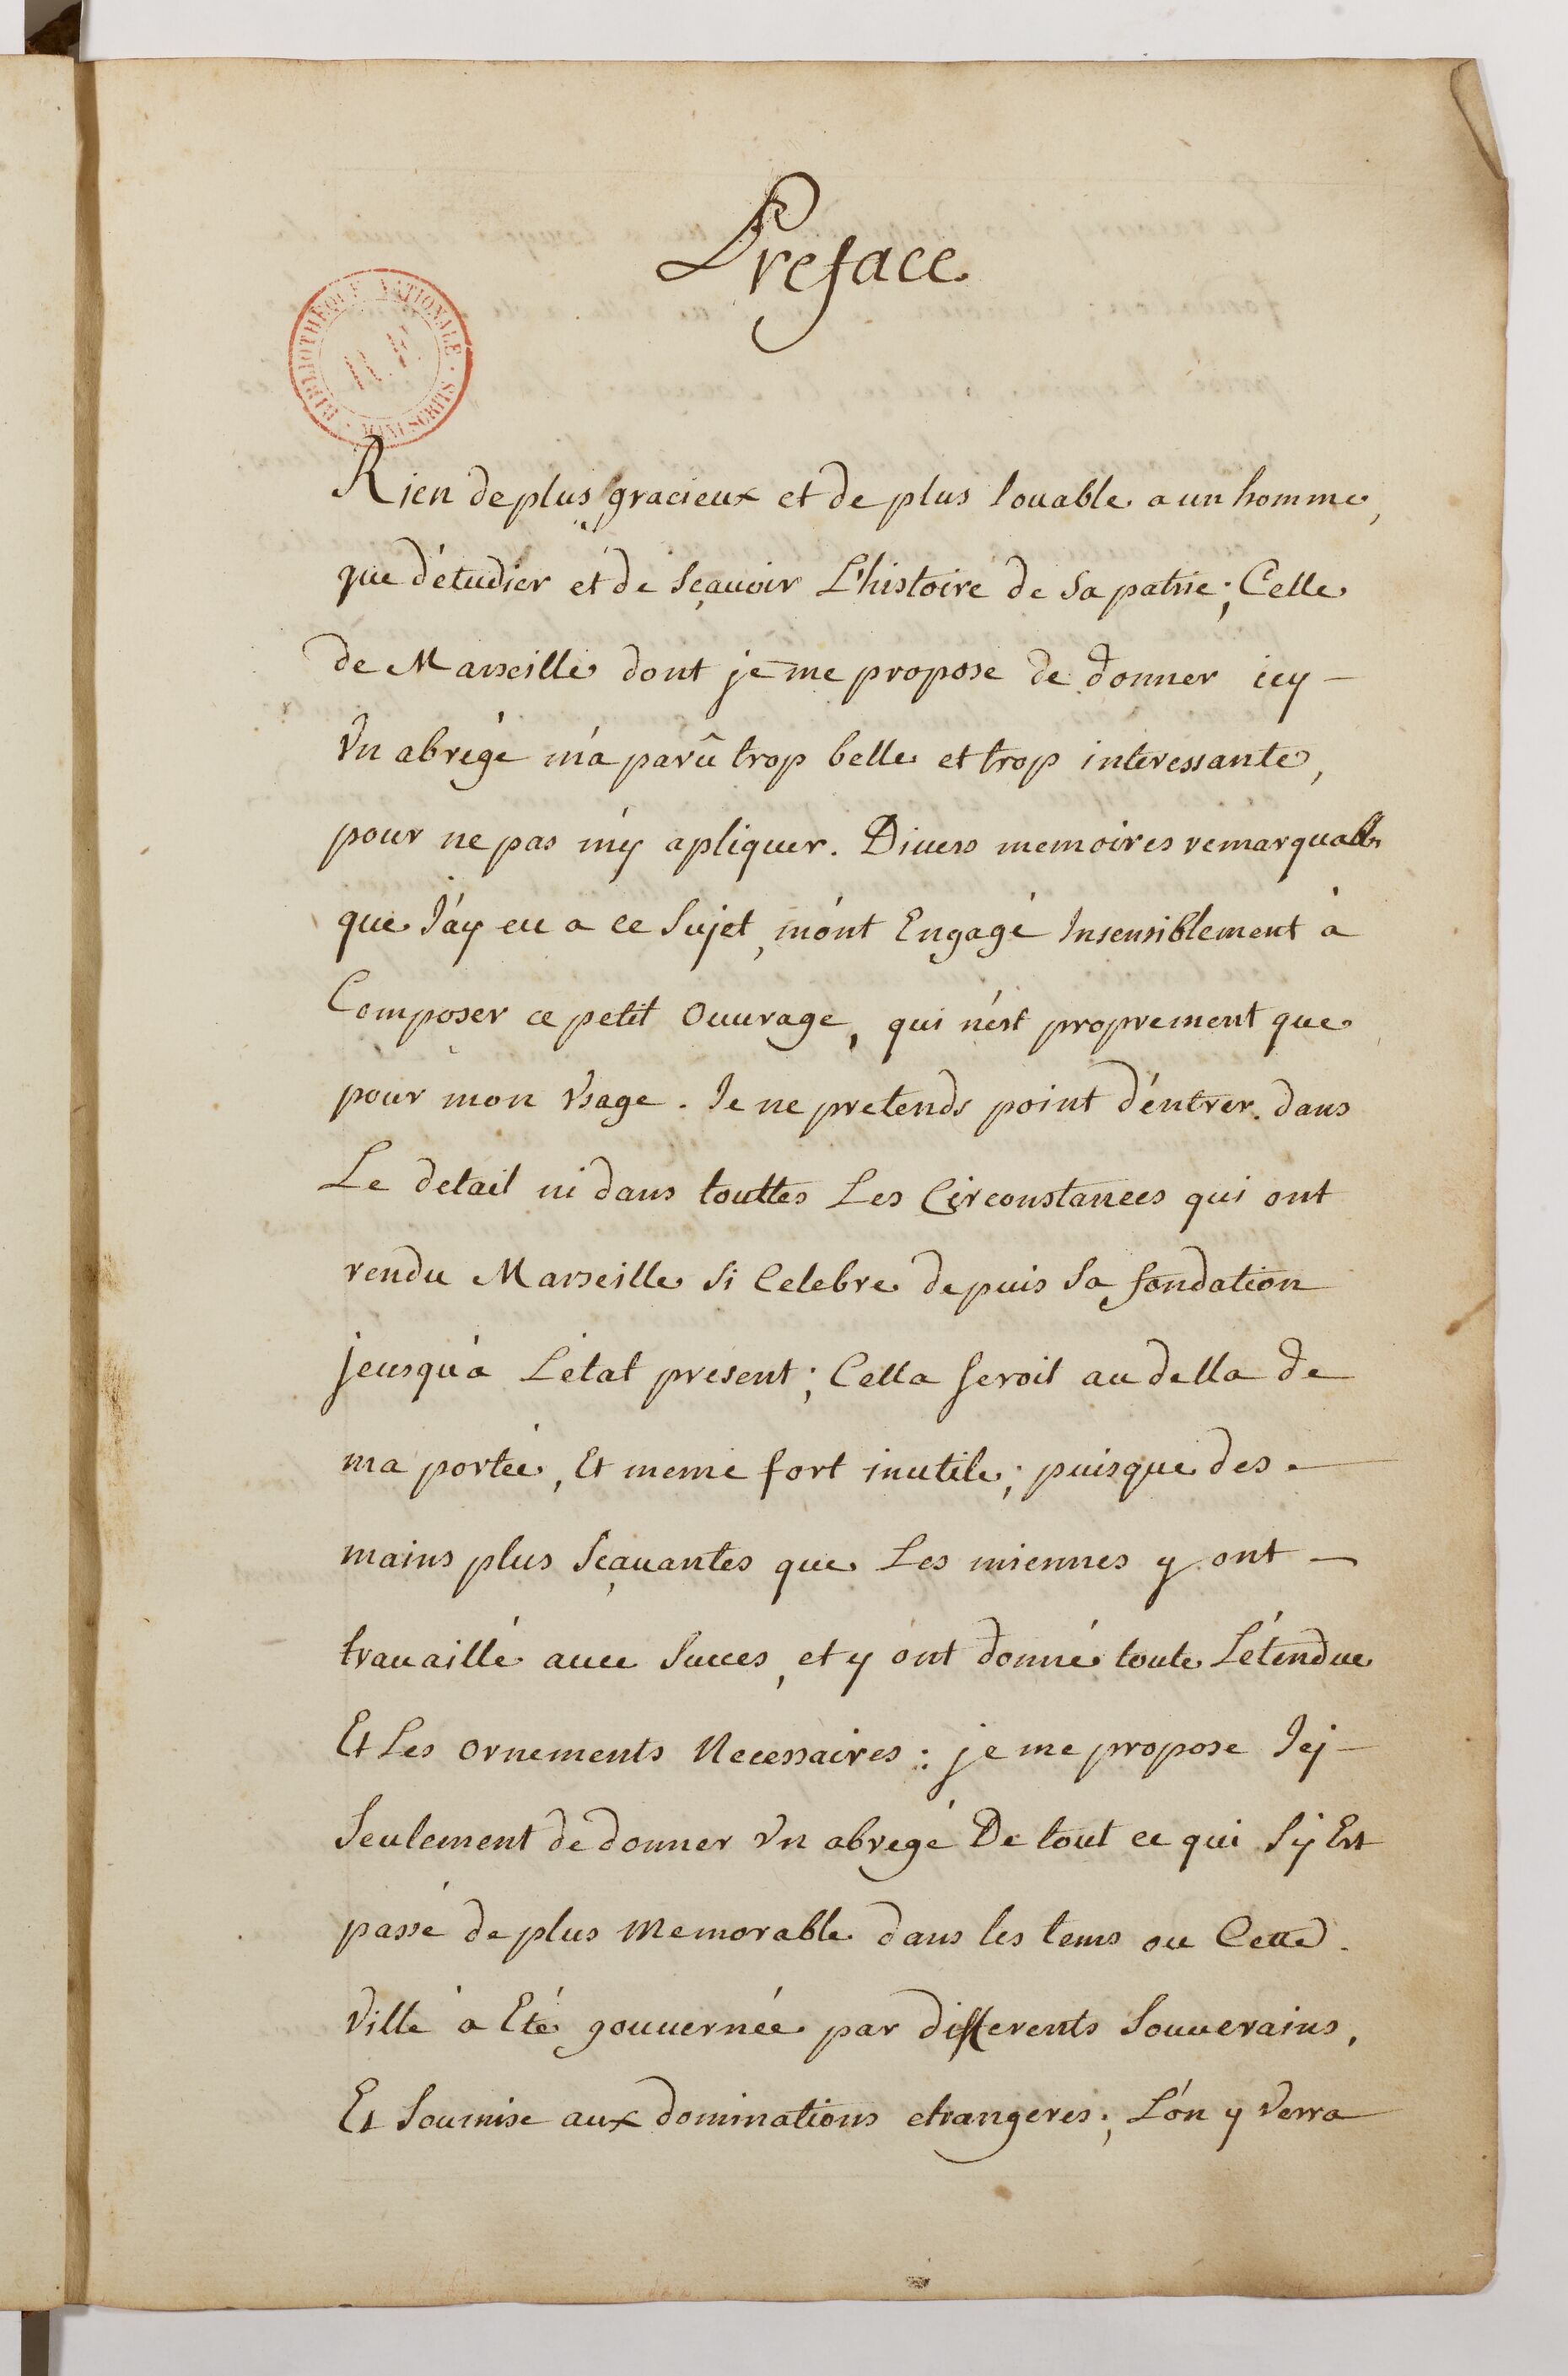 Preface
BIBLIOTHEQUE NATIONALE · MANUSCRITS ·
Rien de plus gracieux et de plus louable a un homme,
que d'étudier et de sçauoir L'histoire de sa patrie; Celle
de Marseille dont je me propose de donner icy —
Vn abregé m'a parû trop belle et trop interessante,
pour ne pas m'y apliquer. Divers memoires remarquabls
que J'ay eu a ce sujet, m'ont Engagé Insensiblement à
Composer ce petit Ouurage, qui n'est proprement que
pour mon Vsage. Je ne pretends point d'éntrer dans
Le detail ni dans touttes Les Circonstances qui ont
rendu Marseille si Celebre depuis sa fondation
jeusqu'à L'état present; Cella seroit au della de
ma portée, Et meme fort inutile; puisque des —
mains plus sçauantes que Les miennes y ont —
trauaillé auec succes, et y ont donné toute L'étendue
Et Les ornements Necessaires: je me propose Icj —
seulement de donner Vn abregé De tout ce qui s'y Est
passé de plus Memorable dans les tems ou Cette
Ville a Eté gouuernée par differents souuerains,
Et soumise aux dominations etrangeres; L'on y verra